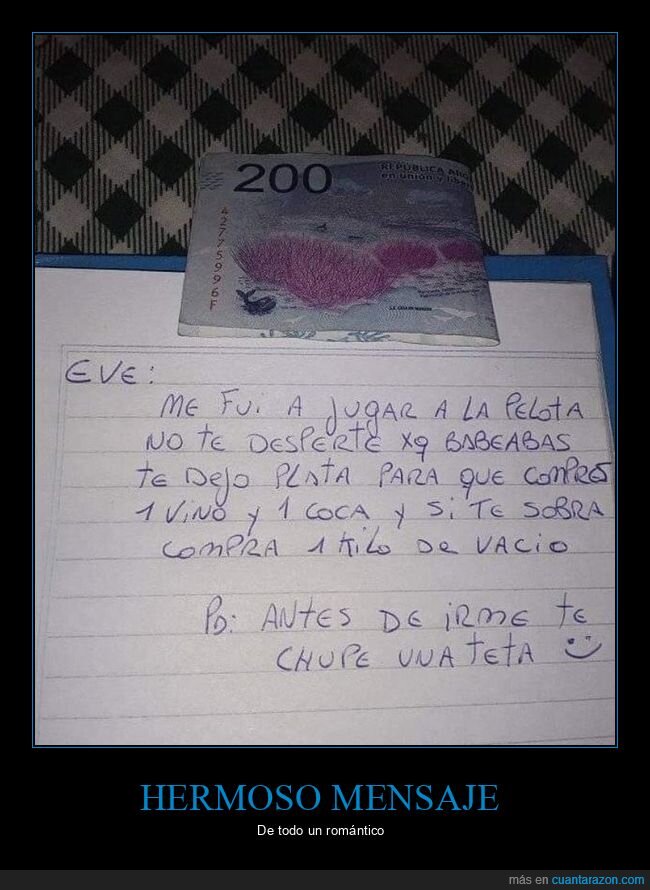 200
REPÚBLICA
en unión y
42775996F
EVE:
ME FUI A JUGAR A LA PELOTA
NO TE DESPERTE XQ BABEABAS
TE DEJO PLATA PARA QUE COMPRES
1 VINO Y 1 COCA Y SI TE SOBRA
COMPRA 1 KILO DE VACIO
PD: ANTES DE IRME TE
CHUPE UNA TETA
HERMOSO MENSAJE
De todo un romántico
más en cuantarazon.com